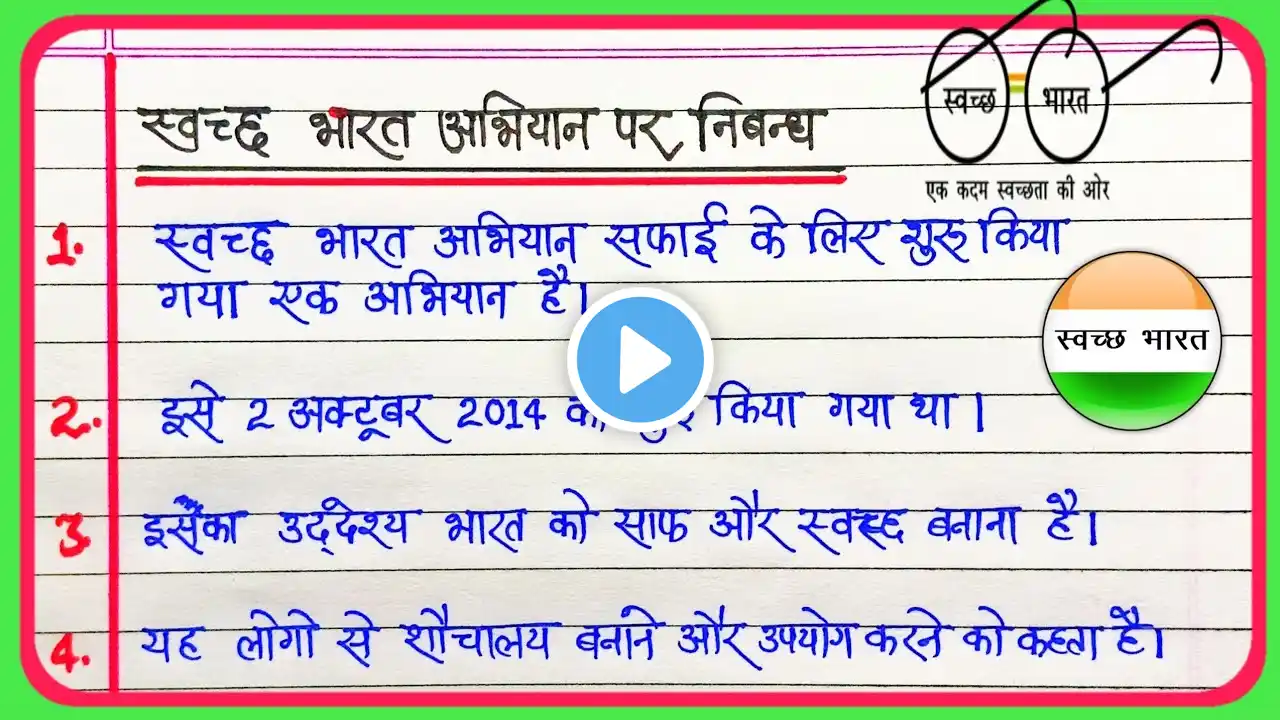 स्वच्छ भारत अभियान पर निबन्ध
स्वच्छ भारत
एक कदम स्वच्छता की ओर
1. स्वच्छ भारत अभियान सफाई के लिए शुरू किया
गया एक अभियान है।
स्वच्छ भारत
2. इसे 2 अक्टूबर 2014 किया गया था।
3 इसका उद्देश्य भारत को साफ और स्वच्छ बनाना है।
4. यह लोगो से शौचालय बनाने और उपयोग करने को कहता है।